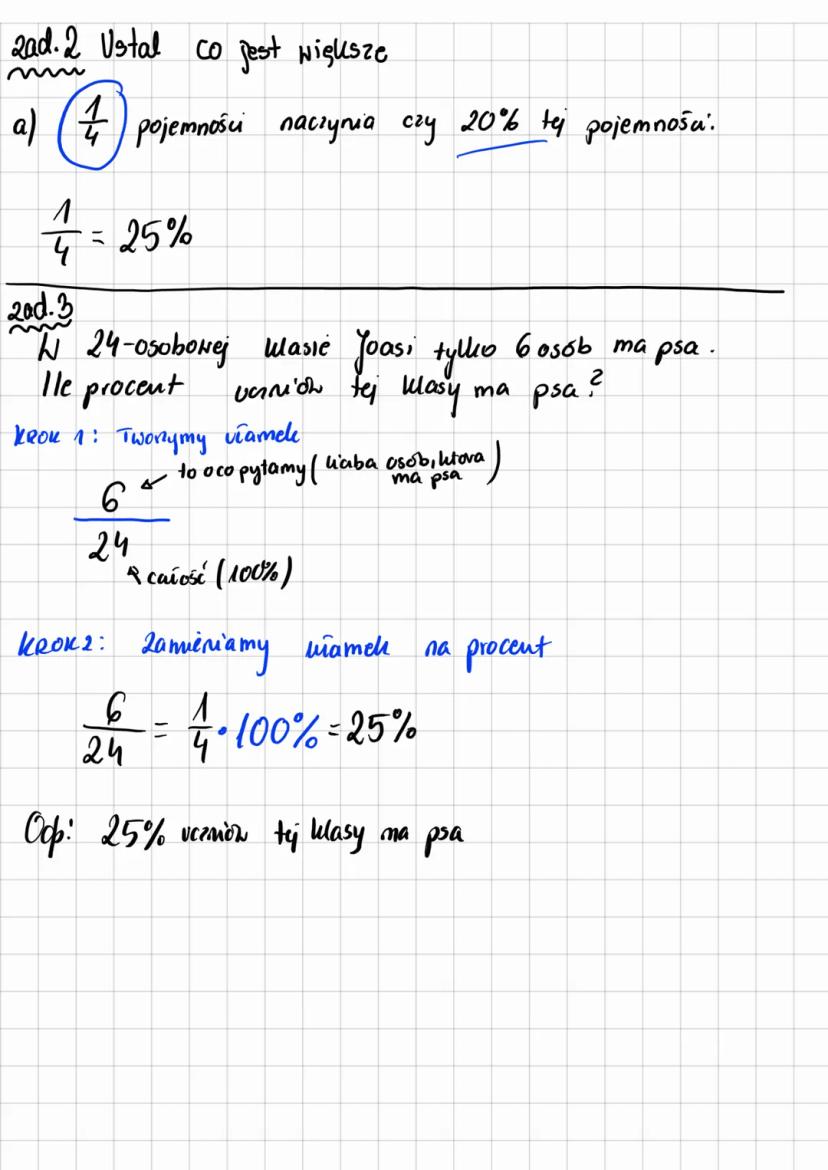 zad.2 Ustal co jest większe
a) 1/4 pojemności naczynia czy 20% tej pojemności.
1/4 = 25%
zad.3
W 24-osobowej klasie Joasi tylko 6 osób ma psa.
Ile procent uczniów tej klasy ma psa?
KROK 1: Tworzymy ułamek
6/24
to o co pytamy (liczba osób, która ma psa)
całość (100%)
KROK 2: Zamieniamy ułamek na procent
6/24 = 1/4 · 100% = 25%
Odp: 25% uczniów tej klasy ma psa